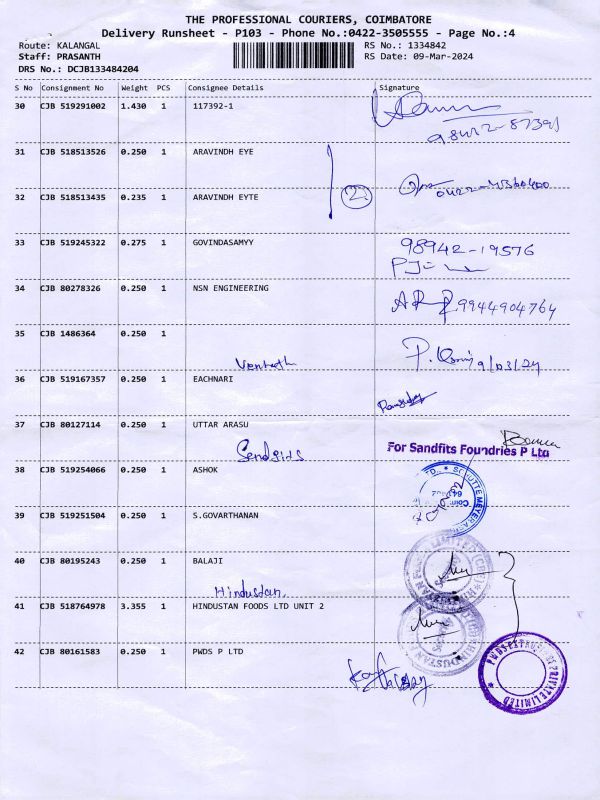 THE PROFESSIONAL COURIERS, COIMBATORE
Delivery Runsheet - P103 - Phone No.:0422-3505555 - Page No.:4
Route: KALANGAL
RS No.: 1334842
Staff: PRASANTH
RS Date: 09-Mar-2024
DRS No.: DCJB133484204
S No Consignment No Weight PCS Consignee Details Signature
30 CJB 519291002 1.430 1 117392-1
31 CJB 518513526 0.250 1 ARAVINDH EYE
2
32 CJB 518513435 0.235 1 ARAVINDH EYTE
33 CJB 519245322 0.275 1 GOVINDASAMYY 98942-19576
34 CJB 80278326 0.250 1 NSN ENGINEERING
9944904764
35 CJB 1486364 0.250 1
9/03/24
36 CJB 519167357 0.250 1 EACHNARI
37 CJB 80127114 0.250 1 UTTAR ARASU
For Sandfits Foundries P Ltd
38 CJB 519254066 0.250 1 ASHOK
39 CJB 519251504 0.250 1 S.GOVARTHANAN
40 CJB 80195243 0.250 1 BALAJI
Hindustan
41 CJB 518764978 3.355 1 HINDUSTAN FOODS LTD UNIT 2
42 CJB 80161583 0.250 1 PWDS P LTD